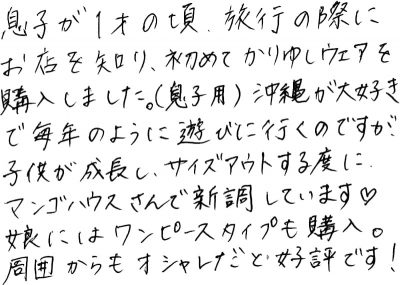 息子が1才の頃、旅行の際に
お店を知り、初めてかりゆしウェアを
購入しました。(息子用)沖縄が大好き
で毎年のように遊びに行くのですが
子供が成長し、サイズアウトする度に、
マンゴハウスさんで新調しています♡
娘にはワンピースタイプも購入。
周囲からもオシャレだと好評です!